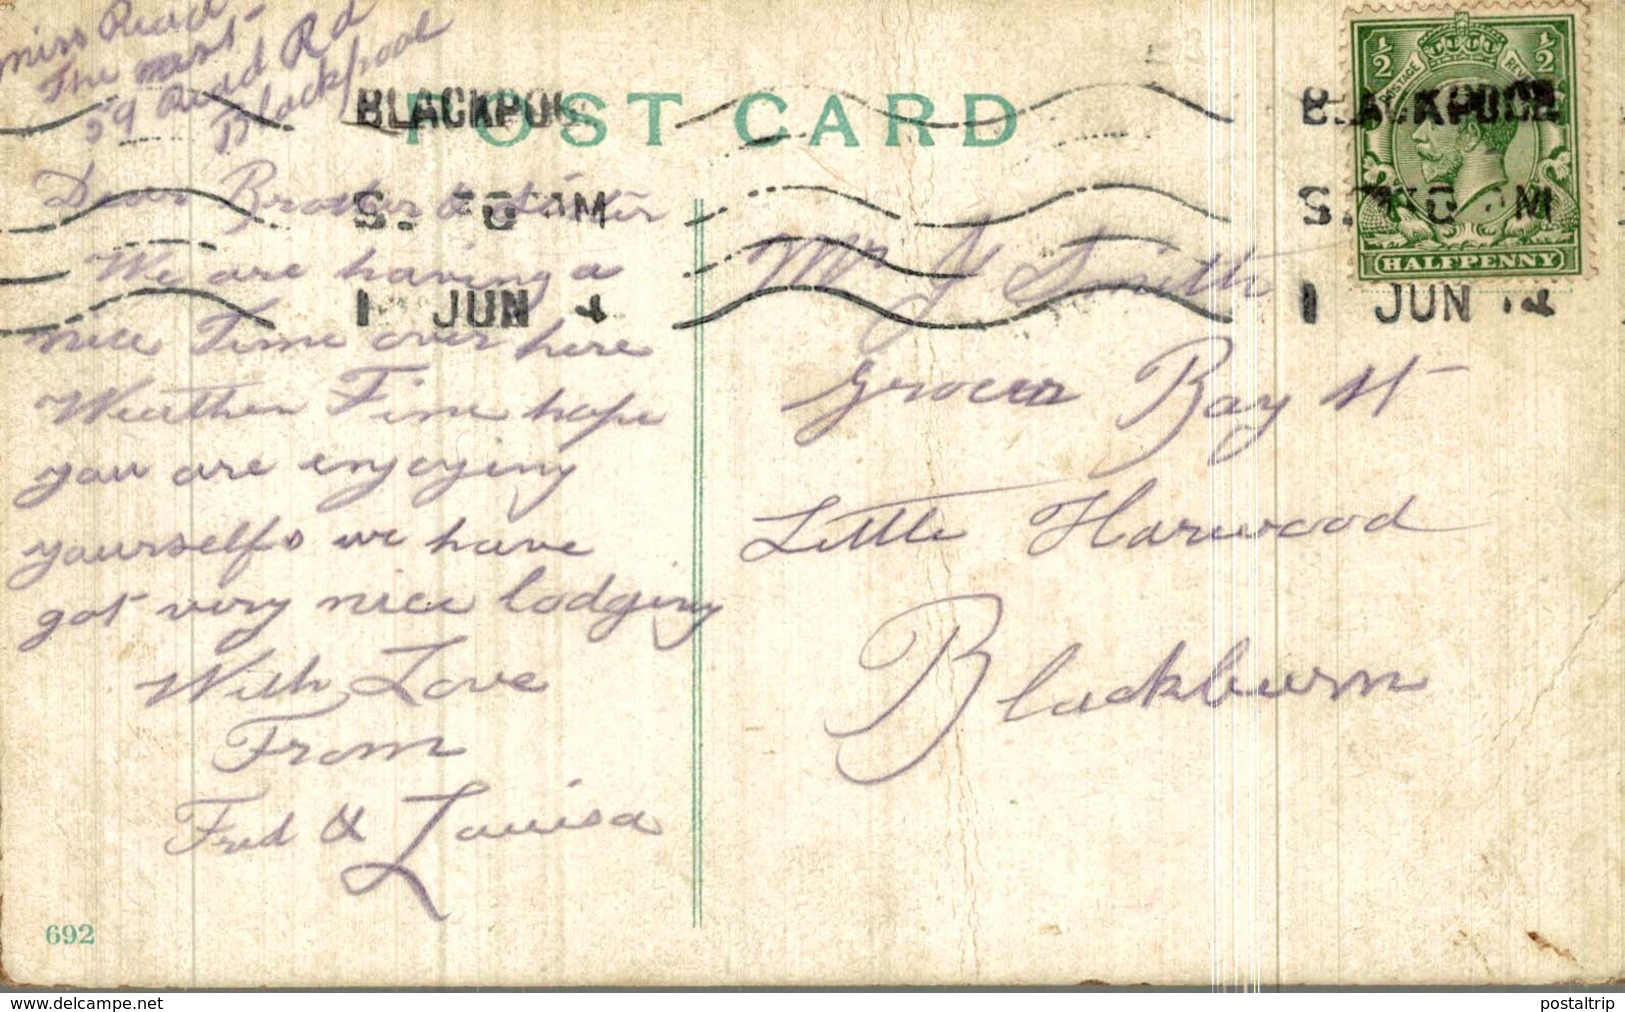 Miss Read
The mast
59 Read Rd
Blackpool
POST CARD
BLACKPOOL
JUN
BLACKPOOL
JUN
½ ½
POSTAGE REVENUE
HALFPENNY
Dear Brother & Sister
We are having a
nice Time over here
Weather Fine hope
you are enjoying
yourselfs we have
got very nice lodging
With Love
From
Fred & Louisa
Mr J Smith
Grocer Bay St
Little Harwood
Blackburn
692
postaltrip
www.delcampe.net